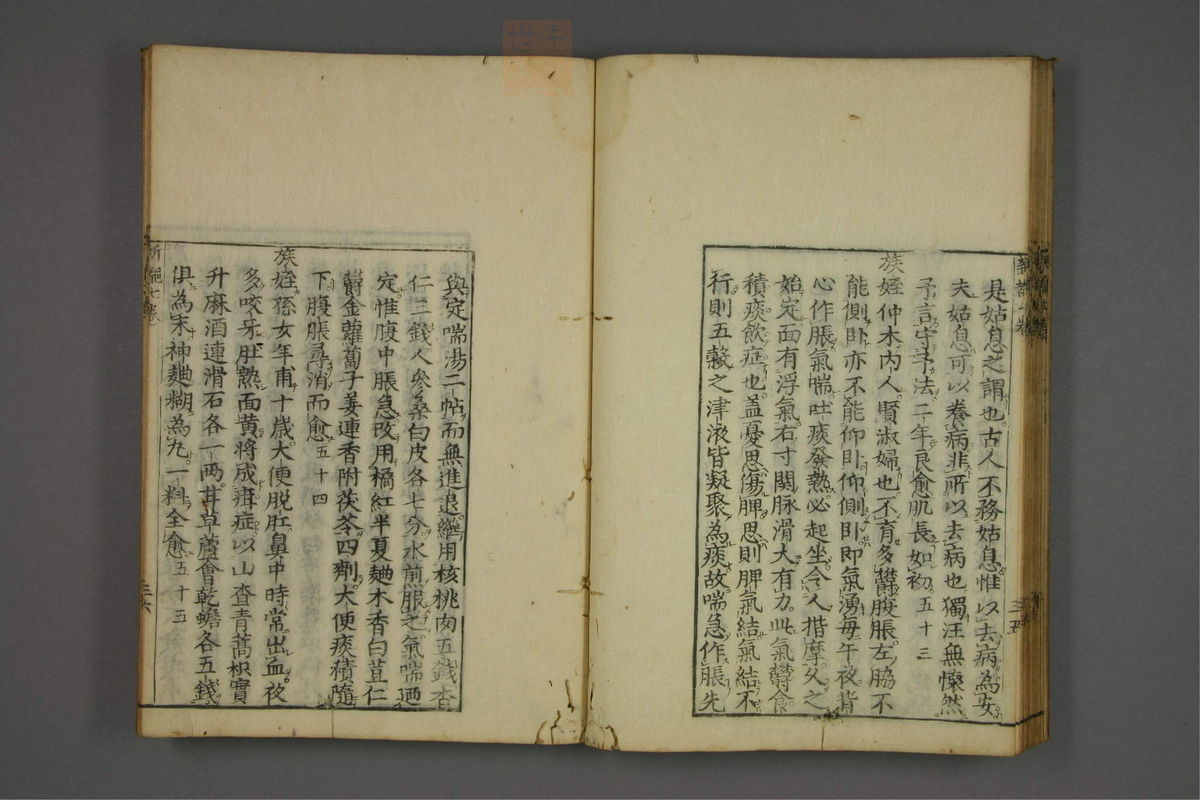 是姑息之謂也古人不務姑息惟以去病為安
夫姑息可以養病非所以去病也獨汪無懷然
予言守予法二年良愈肌長如初五十三
族姪仲木內人賢淑婦也不育多欝腹脹左脇不
能側卧亦不能仰卧仰側卧即氣湧每午夜背
心作脹氣喘吐痰發熱必起坐令人揩摩久之
始定面有浮氣右寸関脉滑大有力此氣欝食
積痰飲症也盖憂思傷脾思則脾氣結氣結不
行則五穀之津液皆凝聚為痰故喘急作脹先
三五
與定喘湯二帖而無進退繼用核桃肉五錢杏
仁三錢人參桑白皮各七分水煎服之氣喘廼
定惟腹中脹急改用橘紅半夏麯木香白荳仁
欝金蘿蔔子姜連香附茯苓四劑大便痰積隨
下腹脹尋消而愈五十四
族姪孫女年甫十歲大便脫肛鼻中時常出血夜
多咬牙肚熱面黄將成疳症以山查青蒿枳實
升麻酒連滑石各一两甘草蘆會乾蟾各五錢
俱為末神麯糊為丸一料全愈五十五
三六